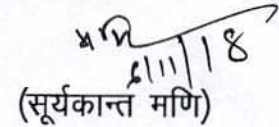 6/11/18
(सूर्यकान्त मणि)